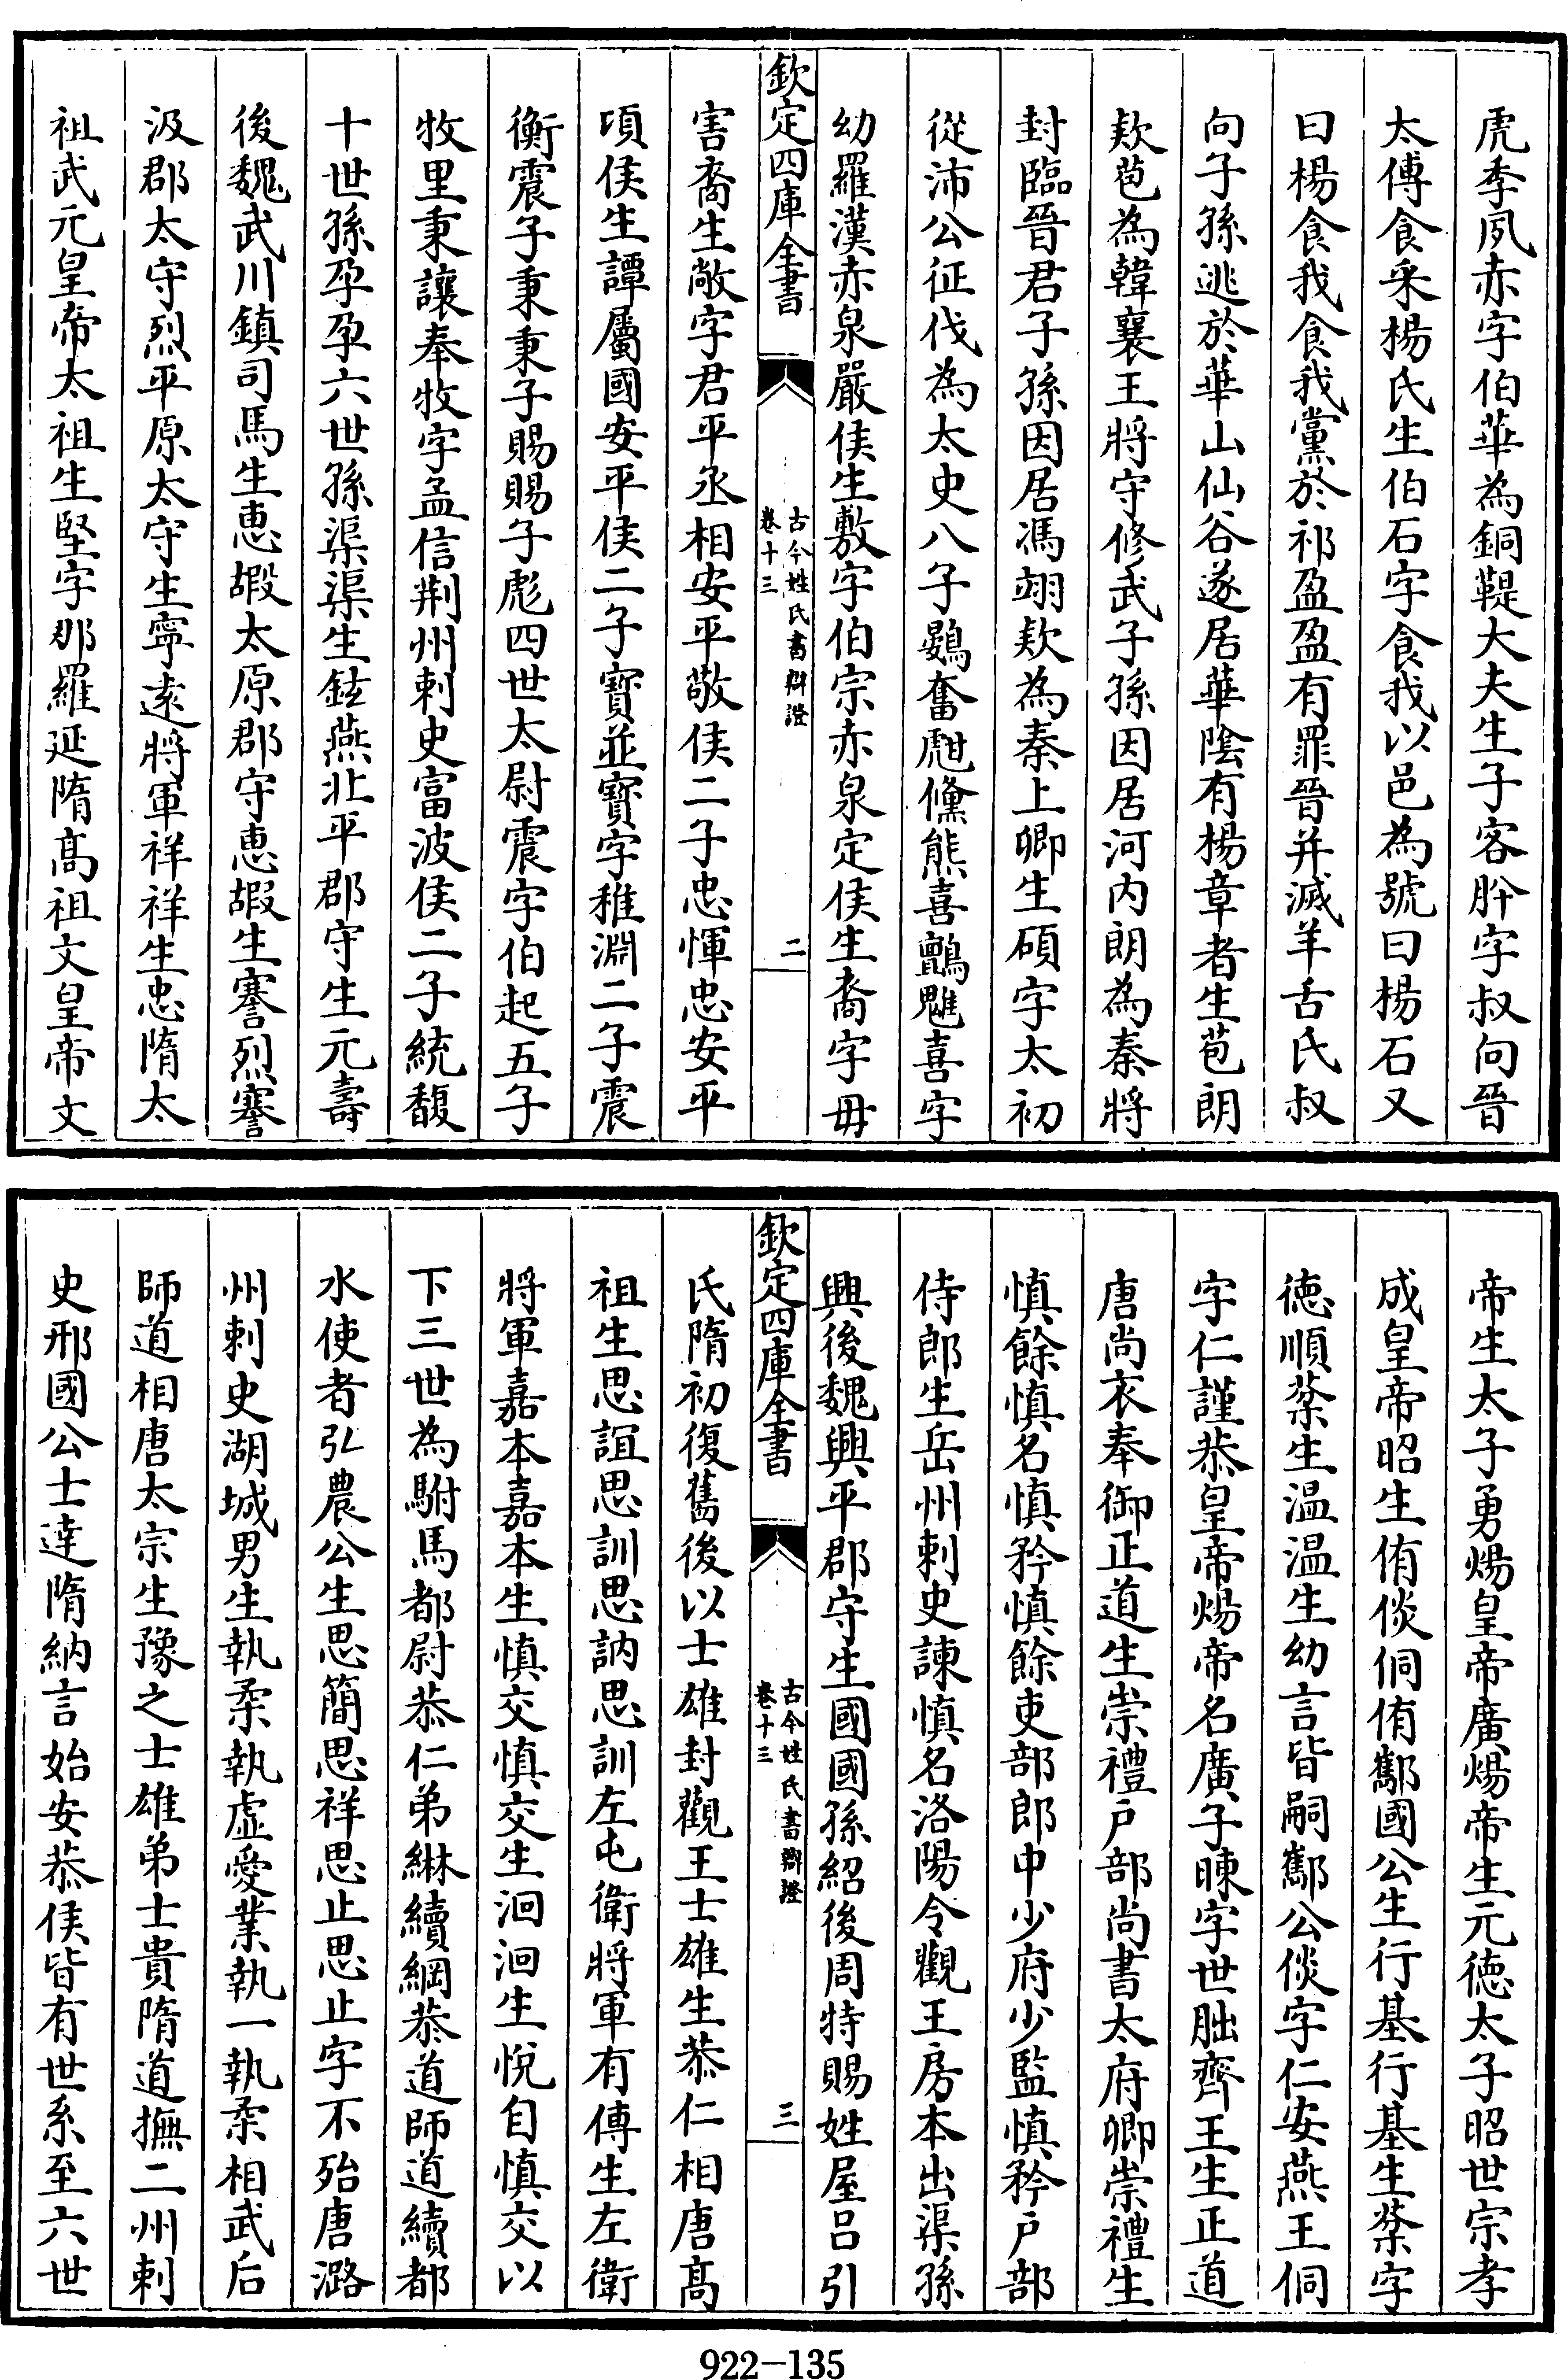 虎季夙赤字伯華為銅鞮大夫生子客肸字叔向晉
太傅食采楊氏生伯石字食我以邑為號曰楊石又
曰楊食我食我黨於祁盈盈有罪晉并滅羊舌氏叔
向子孫逃於華山仙谷遂居華陰有楊章者生苞朗
欵苞為韓襄王將守修武子孫因居河内朗為秦將
封臨晉君子孫因居馮翊欵為秦上卿生碩字太初
從沛公征伐為太史八子鷃奮虪儵熊喜鸇魋喜字
幼羅漢赤泉嚴侯生敷字伯宗赤泉定侯生裔字毋
欽定四庫全書
古今姓氏書辯證
卷十三
二
害裔生敞字君平丞相安平敬侯二子忠惲忠安平
頃侯生譚屬國安平侯二子寶並寶字稚淵二子震
衡震子秉秉子賜賜子彪四世太尉震字伯起五子
牧里秉讓奉牧字孟信荆州刺史富波侯二子統馥
十世孫孕孕六世孫渠渠生鉉燕北平郡守生元壽
後魏武川鎮司馬生惠嘏太原郡守惠嘏生謇烈謇
汲郡太守烈平原太守生寧遠將軍祥祥生忠隋太
祖武元皇帝太祖生堅字那羅延隋高祖文皇帝文
帝生太子勇煬皇帝廣煬帝生元徳太子昭世宗孝
成皇帝昭生侑倓侗侑酅國公生行基行基生棻字
徳順棻生温温生幼言皆嗣酅公倓字仁安燕王侗
字仁謹恭皇帝煬帝名廣子暕字世朏齊王生正道
唐尚衣奉御正道生崇禮戸部尚書太府卿崇禮生
慎餘慎名慎矜慎餘吏部郎中少府少監慎矜戸部
侍郎生岳州刺史諫慎名洛陽令觀王房本出渠孫
興後魏興平郡守生國國孫紹後周特賜姓屋吕引
欽定四庫全書
古今姓氏書辯證
卷十三
三
氏隋初復舊後以士雄封觀王士雄生恭仁相唐高
祖生思誼思訓思訥思訓左屯衛將軍有傳生左衛
將軍嘉本嘉本生慎交慎交生洄洄生悅自慎交以
下三世為駙馬都尉恭仁弟綝續綱恭道師道續都
水使者弘農公生思簡思祥思止思止字不殆唐潞
州刺史湖城男生執柔執虚愛業執一執柔相武后
師道相唐太宗生豫之士雄弟士貴隋道撫二州刺
史邢國公士達隋納言始安恭侯皆有世系至六世
922-135